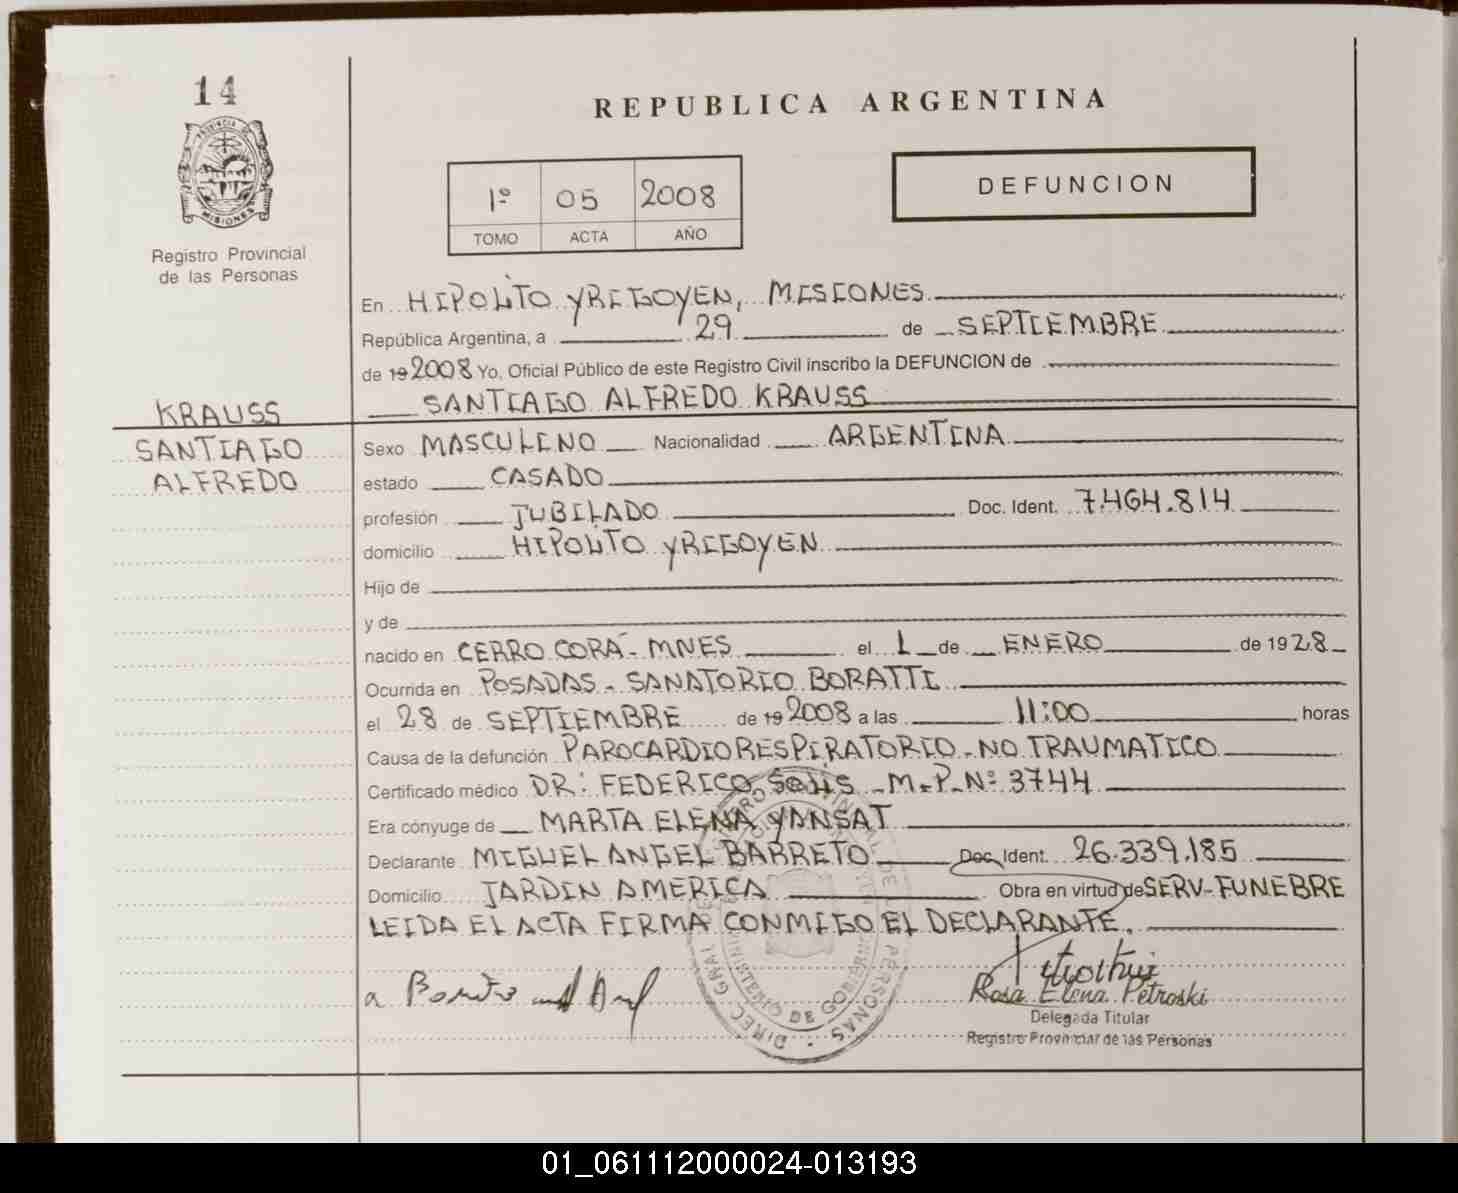 14
REPUBLICA ARGENTINA
PROVINCIA DE
MISIONES
Registro Provincial
de las Personas
1º 05 2008
TOMO ACTA AÑO
DEFUNCION
En HIPOLITO YRIGOYEN, MISIONES
República Argentina, a 29 de SEPTIEMBRE
de 19 2008 Yo, Oficial Público de este Registro Civil inscribo la DEFUNCION de
SANTIAGO ALFREDO KRAUSS
KRAUSS
SANTIAGO
ALFREDO
Sexo MASCULINO Nacionalidad ARGENTINA
estado CASADO
profesión JUBILADO Doc. Ident. 7.464.814
domicilio HIPOLITO YRIGOYEN
Hijo de
y de
nacido en CERRO CORÁ - MNES el 1 de ENERO de 1928
Ocurrida en POSADAS - SANATORIO BORATTI
el 28 de SEPTIEMBRE de 19 2008 a las 11:00 horas
Causa de la defunción PAROCARDIORESPIRATORIO - NO TRAUMATICO
Certificado médico DR: FEDERICO SOLIS - M.P.Nº 3744
Era cónyuge de MARTA ELENA YANSAT
Declarante MIGUEL ANGEL BARRETO Doc. Ident. 26.339.185
Domicilio JARDIN AMERICA Obra en virtud de SERV- FUNEBRE
LEIDA EL ACTA FIRMA CONMIGO EL DECLARANTE.
Rosa Elena Petroski
Delegada Titular
Registro Provincial de las Personas
DIREC. GRAL. DE PERSONAS
MINISTERIO DE GOBIERNO
01_061112000024-013193